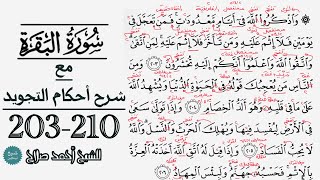 سُورَةُ الْبَقَرَةِ
مع
شرح أحكام التجويد
203-210
الشيخ أحمد صلاح
وَاذْكُرُوا اللَّهَ فِي أَيَّامٍ مَّعْدُودَاتٍ فَمَن تَعَجَّلَ فِي
يَوْمَيْنِ فَلَا إِثْمَ عَلَيْهِ وَمَن تَأَخَّرَ فَلَا إِثْمَ عَلَيْهِ لِمَنِ اتَّقَى
وَاتَّقُوا اللَّهَ وَاعْلَمُوا أَنَّكُمْ إِلَيْهِ تُحْشَرُونَ ٢٠٣ وَمِنَ
النَّاسِ مَن يُعْجِبُكَ قَوْلُهُ فِي الْحَيَوٰةِ الدُّنْيَا وَيُشْهِدُ اللَّهَ
عَلَى مَا فِي قَلْبِهِ وَهُوَ أَلَدُّ الْخِصَامِ ٢٠٤ وَإِذَا تَوَلَّى سَعَى
فِي الْأَرْضِ لِيُفْسِدَ فِيهَا وَيُهْلِكَ الْحَرْثَ وَالنَّسْلَ وَاللَّهُ
لَا يُحِبُّ الْفَسَادَ ٢٠٥ وَإِذَا قِيلَ لَهُ اتَّقِ اللَّهَ أَخَذَتْهُ الْعِزَّةُ
بِالْإِثْمِ فَحَسْبُهُ جَهَنَّمُ